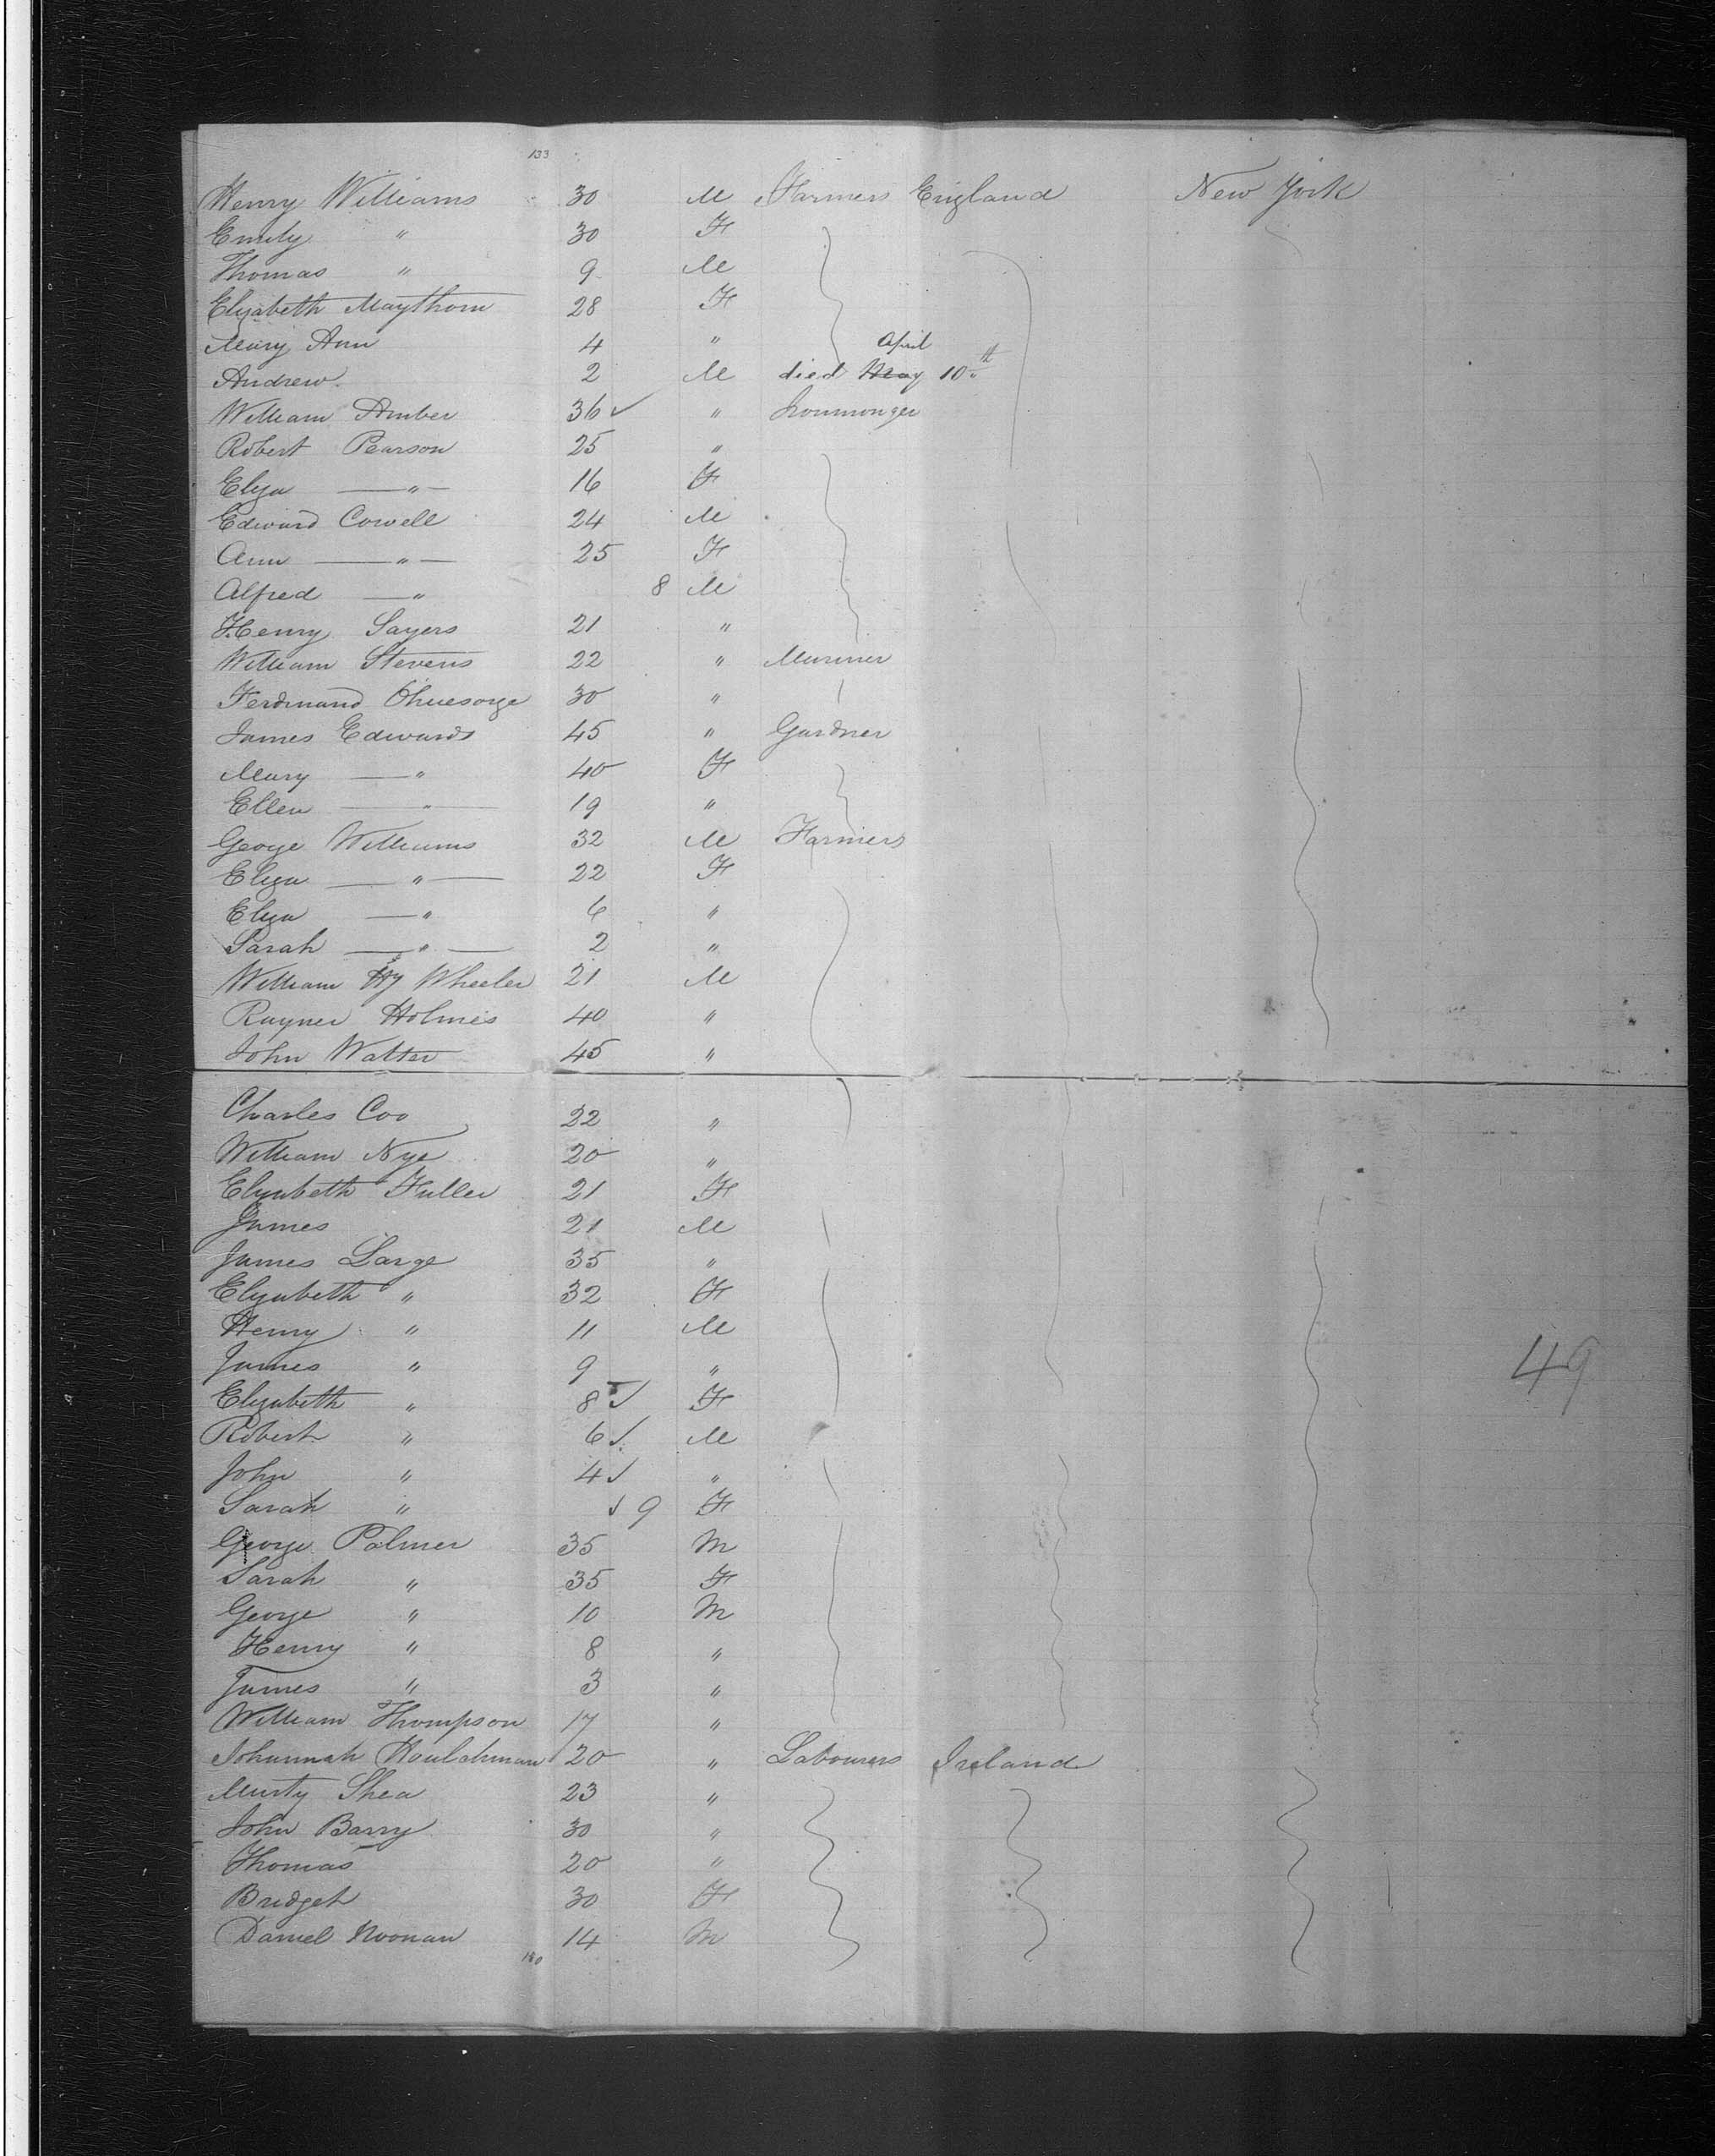 133
Henry Williams 30 M Farmers England New York
Emily " 30 F
Thomas " 9 M
Elizabeth Maythorn 28 F
Mary Ann 4 "
April
Andrew 2 M died May 10th
William Amber 36 ✓ " Ironmonger
Robert Pearson 25 "
Eliza — " — 16 F
Edward Cowell 24 M
Ann — " — 25 F
Alfred — " 8 M
Henry Sayers 21 "
William Stevens 22 " Mariner
Ferdinand Ohnesorge 30 "
James Edwards 45 " Gardner
Mary — " 40 F
Ellen — " — 19 "
George Williams 32 M Farmers
Eliza — " — 22 F
Eliza — " 6 "
Sarah — " — 2 "
William Hy Wheeler 21 M
Rayner Holmes 40 "
John Watter 45 "
Charles Coo 22 "
William Nye 20 "
Elizabeth Fuller 21 F
James 21 M
James Large 35 "
Elizabeth " 32 F
Henry " 11 M
James " 9 "
Elizabeth " 8 ✓ F
Robert " 6 ✓ M
John " 4 ✓ "
Sarah " ✓ 9 F
George Palmer 35 M
Sarah " 35 F
George " 10 M
Henry " 8 "
James " 3 "
William Thompson 17 "
Johannah 20 " Labourers Ireland
Murty Shea 23 "
John Barry 30 "
Thomas 20 "
Bridget 30 F
Daniel Noonan 14 M
180
49